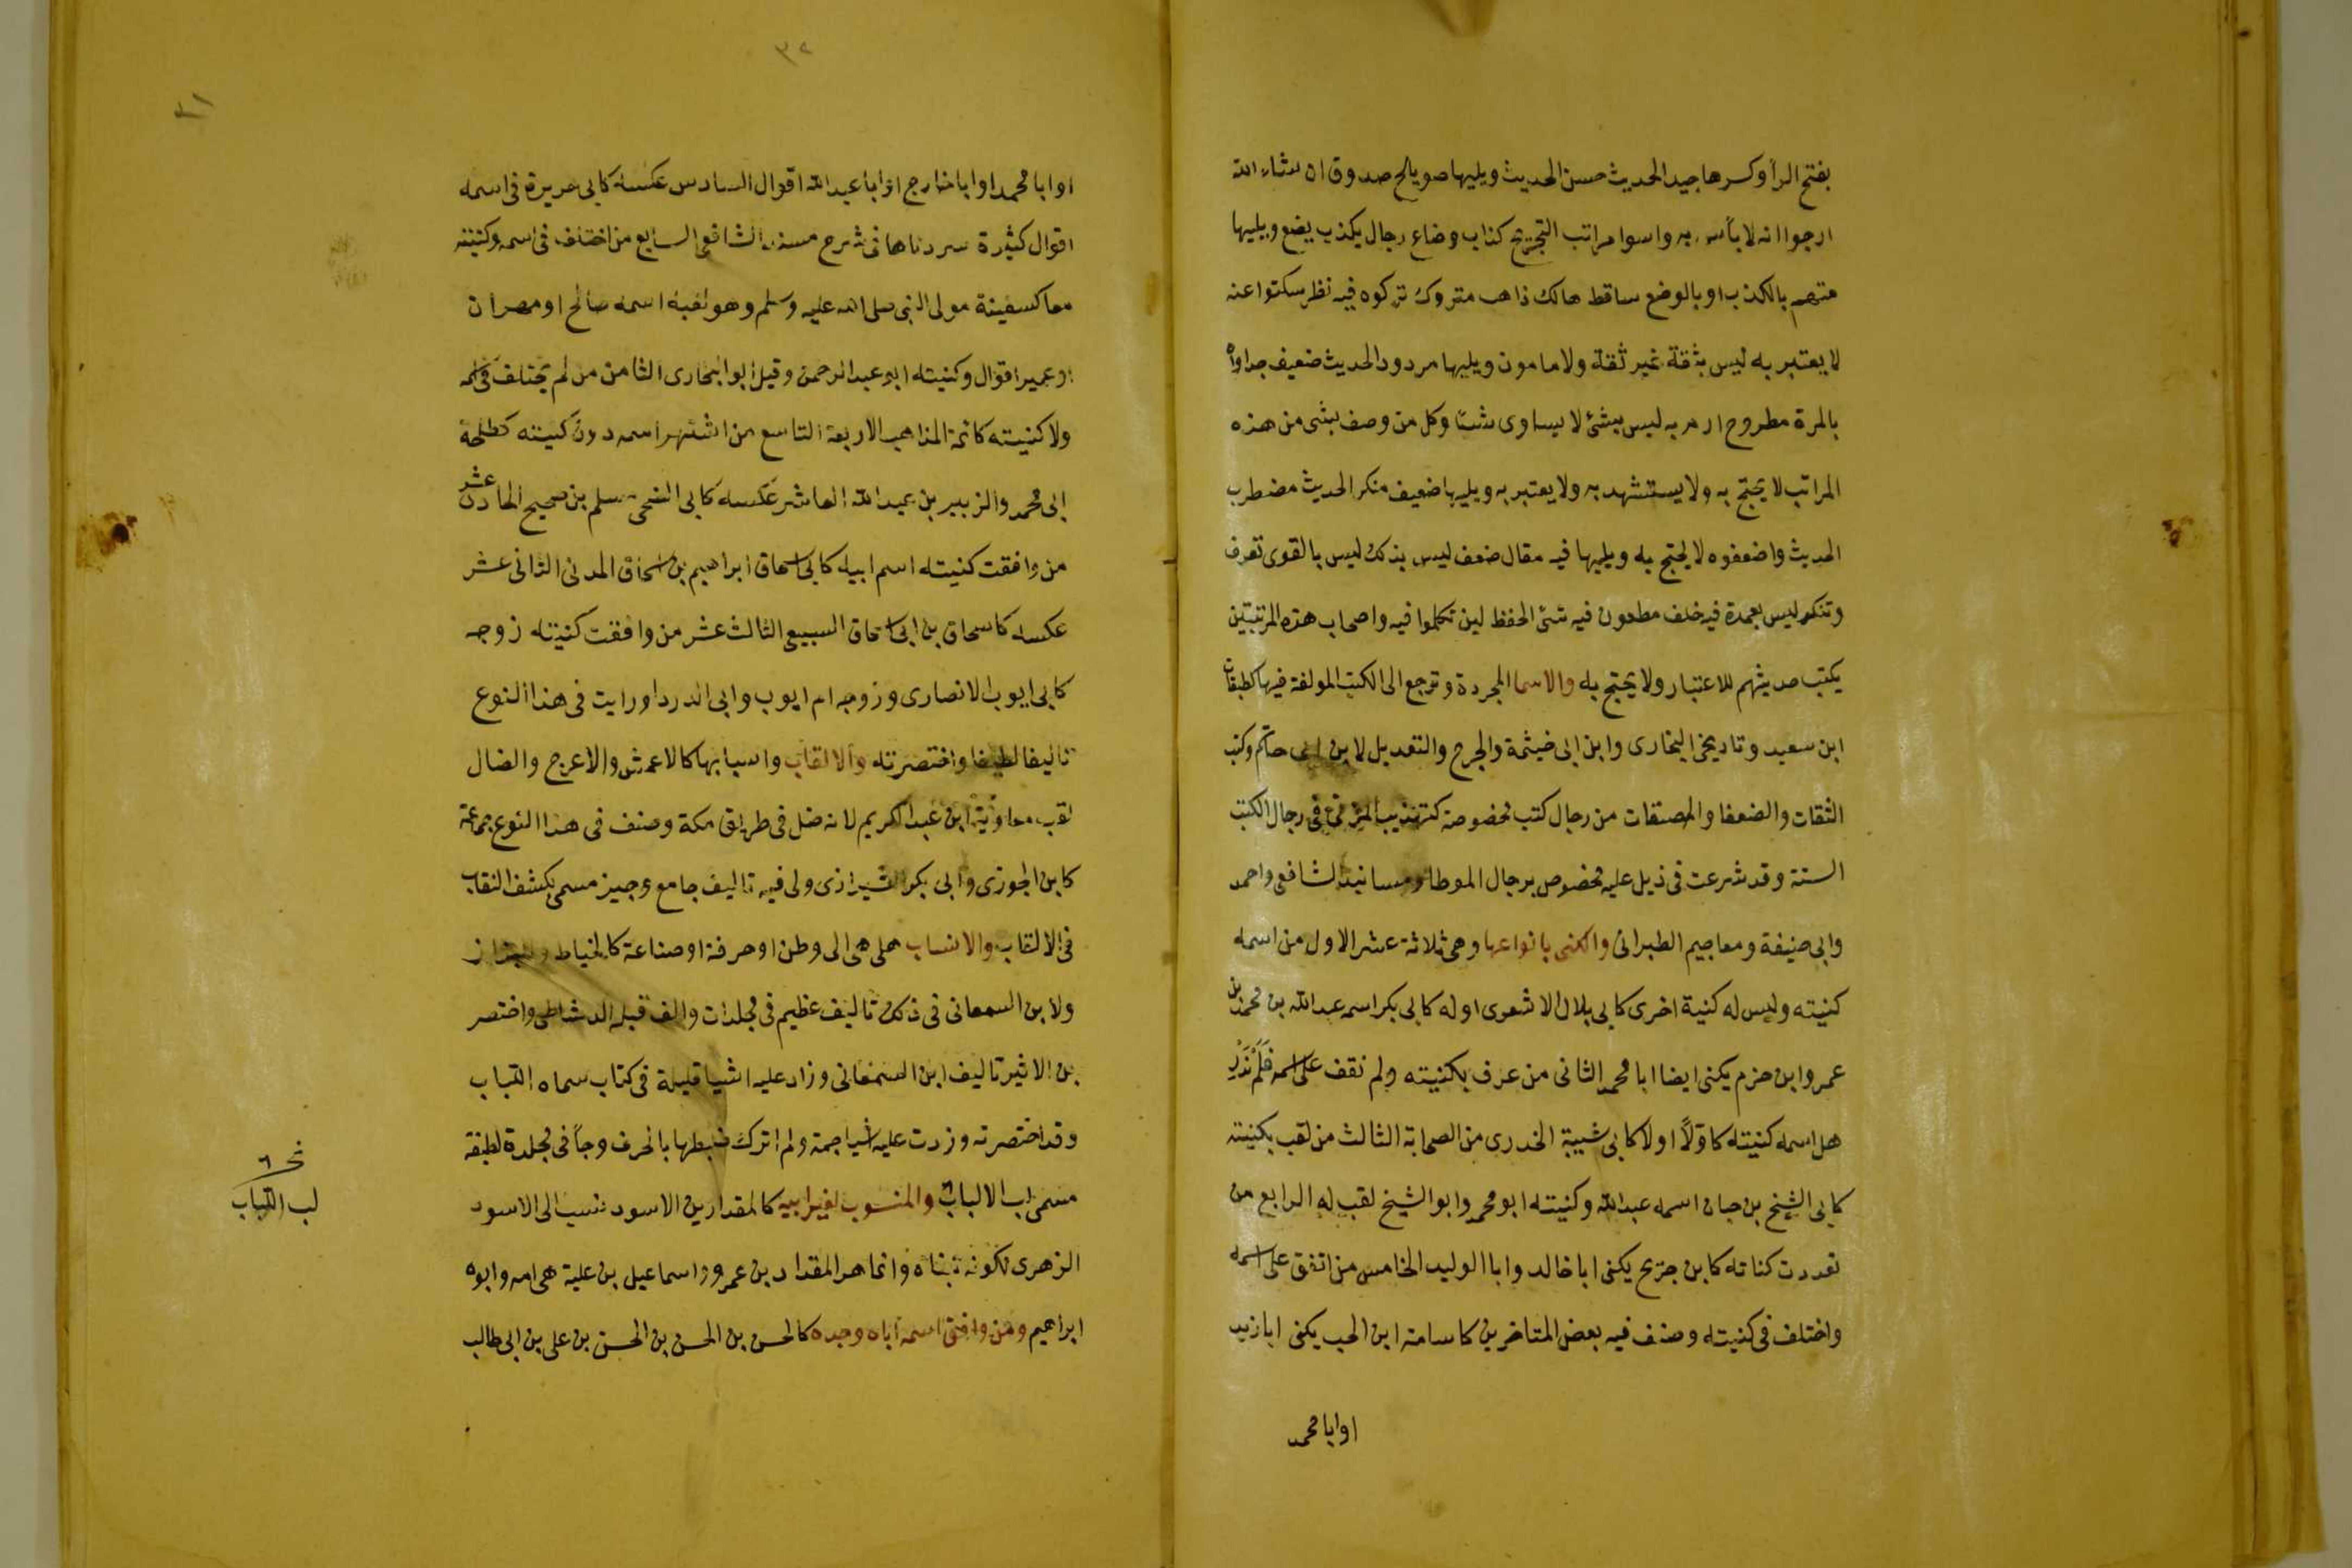 بفتح الرأ وكسرها جيد الحديث حسن الحديث ويليها صويلح صدوق ان شاء الله
ارجوا انه لا بأس به واسوا مراتب التجريح كذاب وضاع رجال يكذب يضع ويليها
متهم بالكذب او بالوضع ساقط هالك ذاهب متروك تركوه فيه نظر سكتوا عنه
لا يعتبر به ليس بثقة غير ثقة ولا مامون ويليها مردود الحديث ضعيف جدا واه
بالمرة مطروح ارم به ليس بشئ لا يساوى شئا وكل من وصف بشى من هذه
المراتب لا يحتج به ولا يستشهد به ولا يعتبر به ويليها ضعيف منكر الحديث مضطرب
الحديث واه ضعفوه لا يحتج به ويليها فيه مقال ضعف ليس بذلك ليس بالقوى تعرف
وتنكر ليس بعمدة فيه خلف مطعون فيه سئ الحفظ لين تكلموا فيه واصحاب هذه المرتبتين
يكتب حديثهم للاعتبار ولا يحتج به والاسما المجردة وترجع الى الكتب المولفة فيها كطبقات
ابن سعيد وتاريخى البخارى وابن ابى خيثمة والجرح والتعديل لابن ابى حاتم وكتب
الثقات والضعفا والمصنفات من رجال كتب مخصوصة كتهذيب المزى فى رجال الكتب
الستة وقد شرعت فى ذيل عليه مخصوص برجال الموطا ومسانيد الشافعى واحمد
وابى حنيفة ومعاجيم الطبرانى والكنى بانواعها وهى ثلاثة عشر الاول من اسمه
كنيته وليس له كنية اخرى كابى بلال الاشعرى اوله كابى بكر اسمه عبد الله بن محمد بن
عمر وابن حزم يكنى ايضا ابا محمد الثانى من عرف بكنيته ولم نقف على اسمه فلم ندر
هل اسمه كنيته كاولا او لا كابى شيبة الخدرى من الصحابة الثالث من لقب بكنيته
كابى الشيخ بن حبان اسمه عبد الله وكنيته ابو محمد وابو الشيخ لقب له الرابع من
تعددت كناته كابن جريح يكنى ابا خالد وابا الوليد الخامس من اتفق على اسمه
واختلف فى كنيته وصنف فيه بعض المتاخرين كاسامة ابن الحب يكنى ابا زيد
او ابا محمد
٣٢
٣١
او ابا محمد او ابا خارج او ابا عبد الله اقوال السادس عكسه كابى هريرة فى اسمه
اقوال كثيرة سردناها فى شرح مسند الشافعى السابع من اختلف فى اسمه وكنيته
معا كسفينة مولى النبى صلى الله عليه وسلم وهو لقبه اسمه صالح او مهران
او عمير اقوال وكنيته ابو عبد الرحمن وقيل ابو البخارى الثامن من لم يختلف فى اسمه
ولا كنيته كائمة المذاهب الاربعة التاسع من اشتهر اسمه دون كنيته كطلحة
ابى محمد والزبير بن عبد الله العاشر عكسه كابى الضحى مسلم بن صبيح الحادى عشر
من وافقت كنيته اسم ابيه كابى اسحاق ابراهيم بن اسحاق المدنى الثانى عشر
عكسه كاسحاق بن ابى اسحاق السبيعى الثالث عشر من وافقت كنيته زوجه
كابى ايوب الانصارى وزوجه ام ايوب وابى الدردا ورايت فى هذا النوع
تاليفا لطيفا واختصرته والالقاب واسبابها كالاعمش والاعرج والضال
لقب معاوية ابن عبد الكريم لانه ضل فى طريق مكة وصنف فى هذا النوع جماعة
كابن الجوزى وابى بكر الشيرازى ولى فيه تاليف جامع وجيز مسمى بكشف النقاب
فى الالقاب والانساب هل هى الى وطن او حرفة او صناعة كالخياط والبزاز
ولابن السمعانى فى ذلك تاليف عظيم فى مجلدات والف قبله الرشاطى واختصر
بن الاثير تاليف ابن السمعانى وزاد عليه اشيا قليلة فى كتاب سماه اللباب
وقد اختصرته وزدت عليه اشيا جمة ولم اترك ضبطها بالحرف وجآ فى مجلدة لطيفة
مسمى لب الالباب والمنسوب لغير ابيه كالمقداد بن الاسود نسب الى الاسود
الزهرى لكونه تبناه وانما هو المقداد بن عمرو واسماعيل بن علية هى امه وابوه
ابراهيم ومن وافق اسمه اباه وجده كالحسن بن الحسن بن الحسن بن على بن ابى طالب
لب اللباب